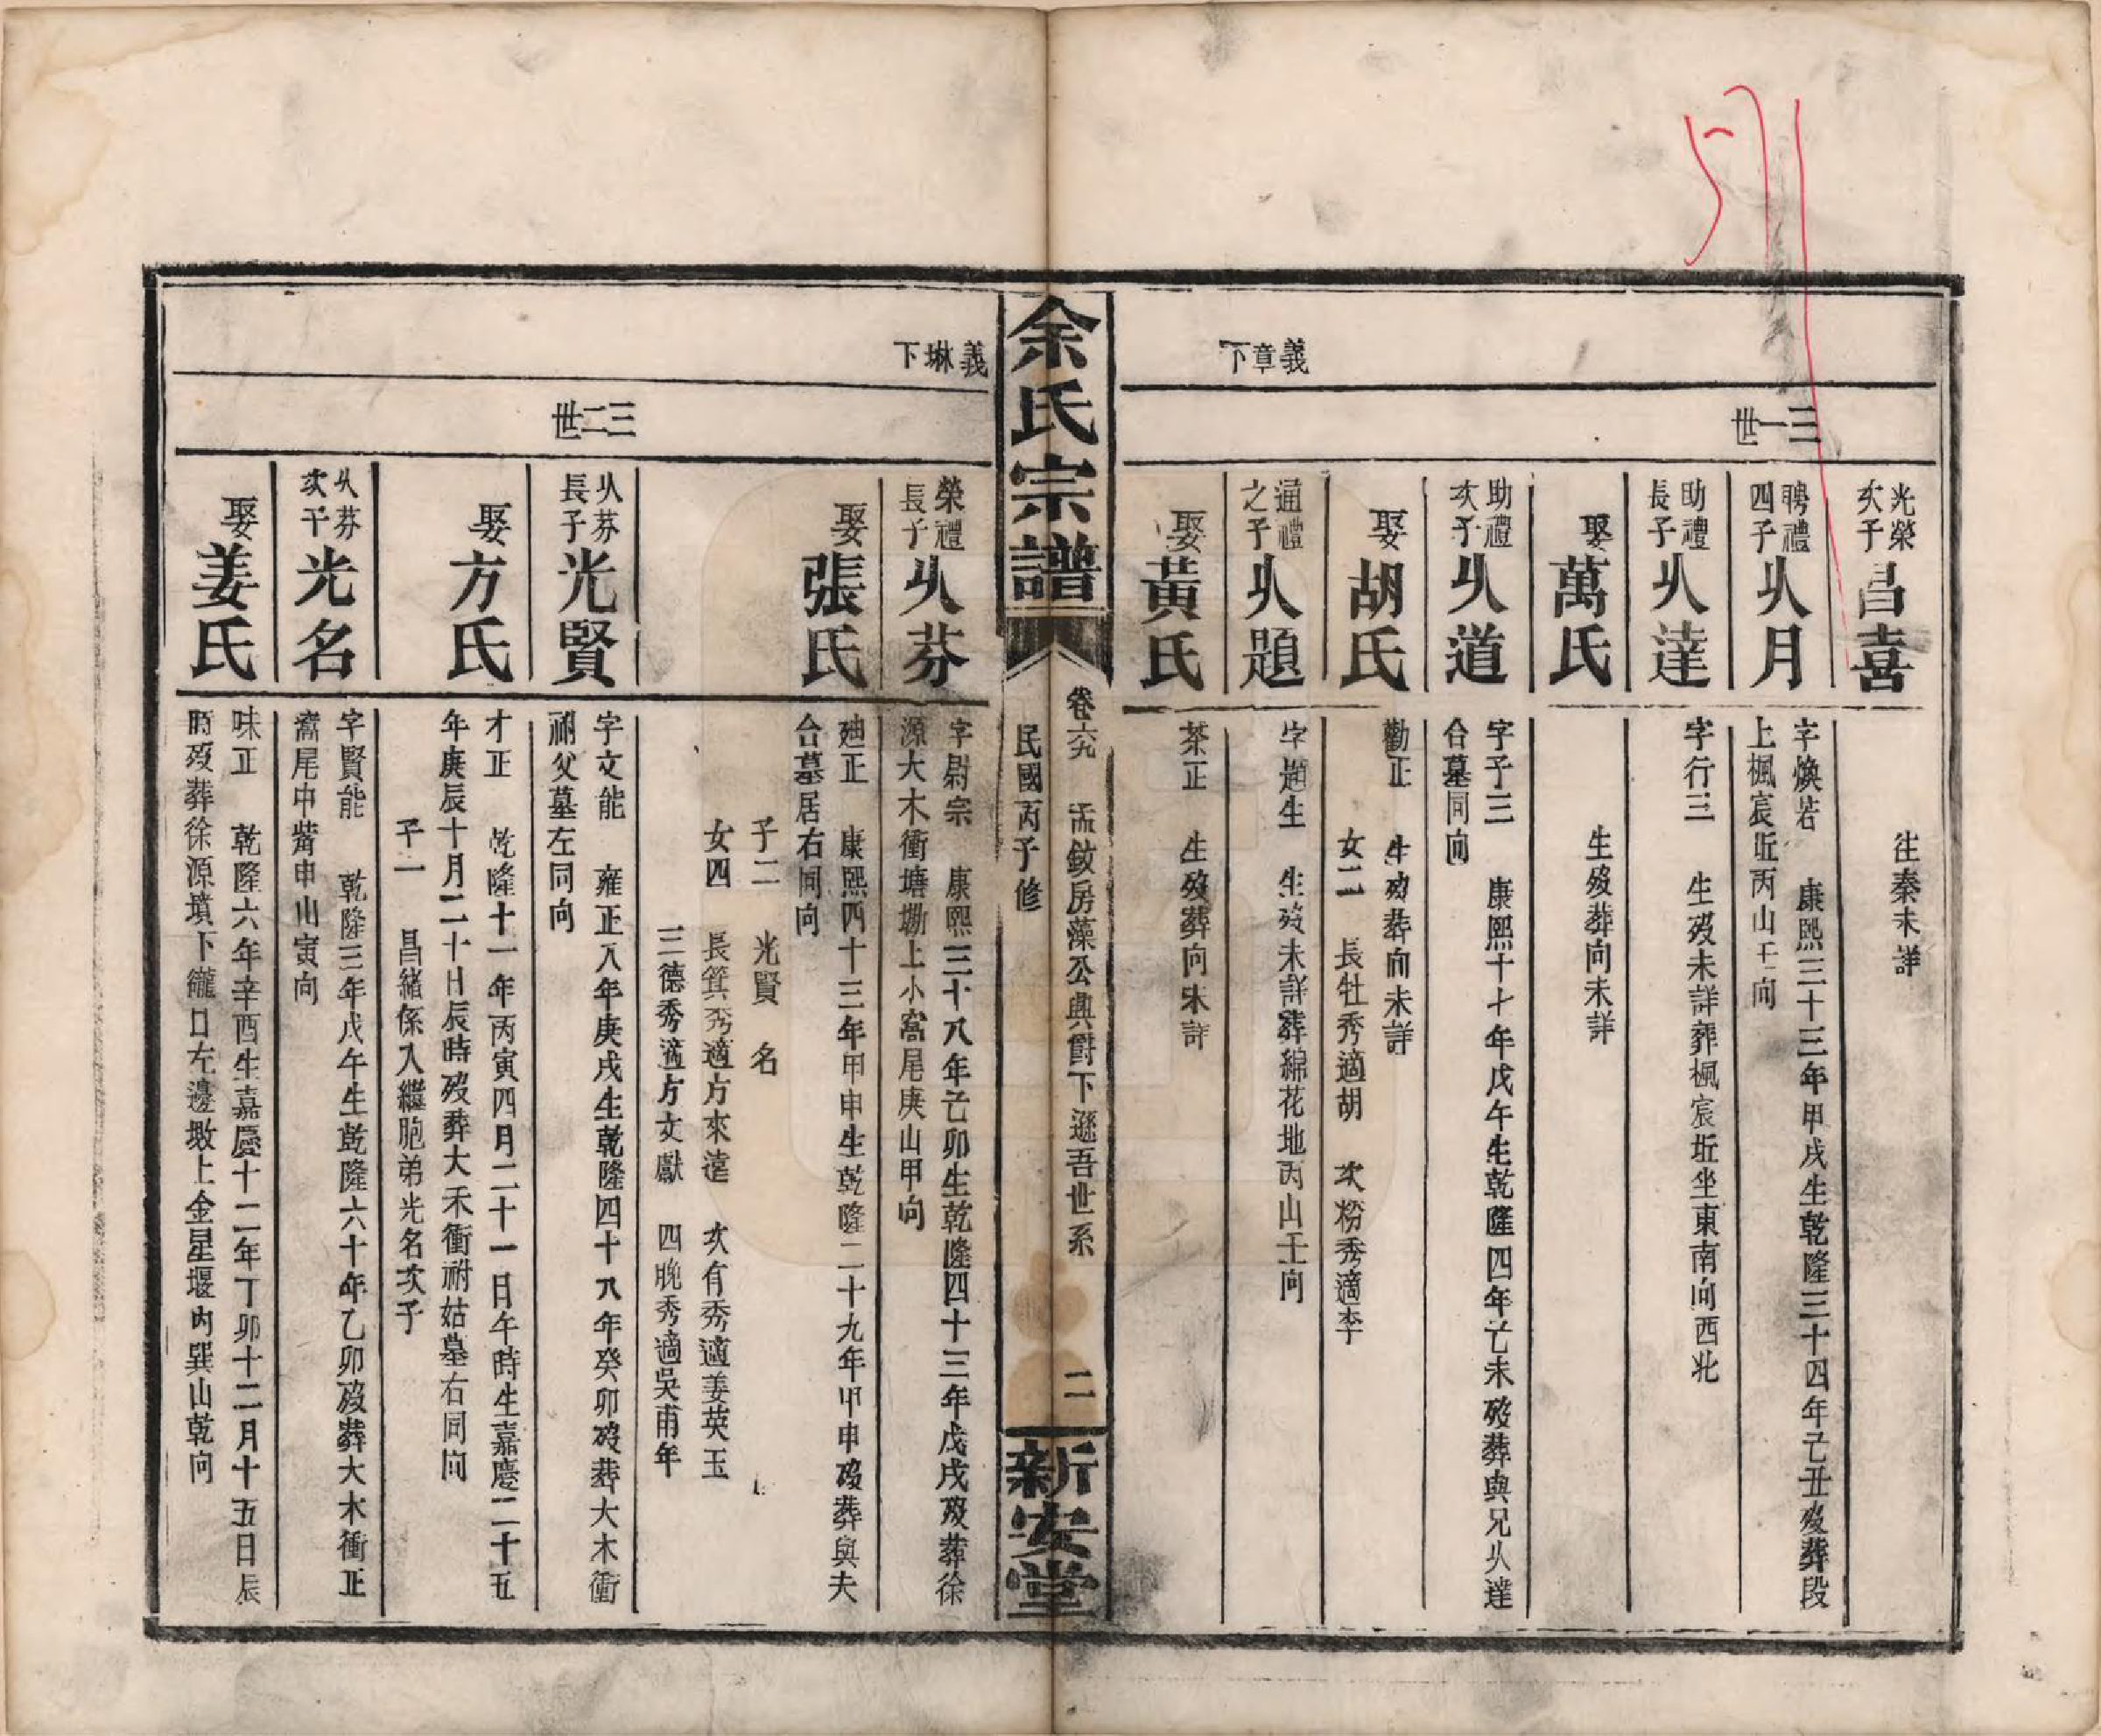 義章下
三一世
光榮次子昌喜
往秦未詳
聘禮四子㕥月
字煥若　康熙三十三年甲戌生乾隆三十四年己丑歿葬段
上楓宸坵丙山壬向
助禮長子㕥達
字行三　生歿未詳葬楓宸坵坐東南向西北
娶萬氏
生歿葬向未詳
助禮次子㕥道
字子三　康熙十七年戊午生乾隆四年己未歿葬與兄㕥達
合墓同向
娶胡氏
勸正　生歿葬向未詳
女二　長牡秀適胡　次粉秀適李
通禮之子㕥題
字題生　生歿未詳葬綿花地丙山壬向
娶黃氏
茶正　生歿葬向未詳
余氏宗譜
卷六九　孟鈫房藻公興爵下遜吾世系　二
民國丙子修
新安堂
義琳下
榮禮長子㕥芬
字尉宗　康熙三十八年己卯生乾隆四十三年戊戌歿葬徐
源大木衝塘塝上小窩尾庚山甲向
娶張氏
廸正　康熙四十三年甲申生乾隆二十九年甲申歿葬與夫
合墓居右同向
子二　光賢　名
女四　長箕秀適方來遠　次有秀適姜英玉
三德秀適方文獻　四晚秀適吳甫年
三二世
㕥芬長子光賢
字文能　雍正八年庚戌生乾隆四十八年癸卯歿葬大木衝
祔父墓左同向
娶方氏
才正　乾隆十一年丙寅四月二十一日午時生嘉慶二十五
年庚辰十月二十日辰時歿葬大禾衝祔姑墓右同向
子一　昌緒係入繼胞弟光名次子
㕥芬次子光名
字賢能　乾隆三年戊午生乾隆六十年乙卯歿葬大木衝正
窩尾中嘴申山寅向
娶姜氏
味正　乾隆六年辛酉生嘉慶十二年丁卯十二月十五日辰
時歿葬徐源墳下巃口左邊墩上金星堰內巽山乾向